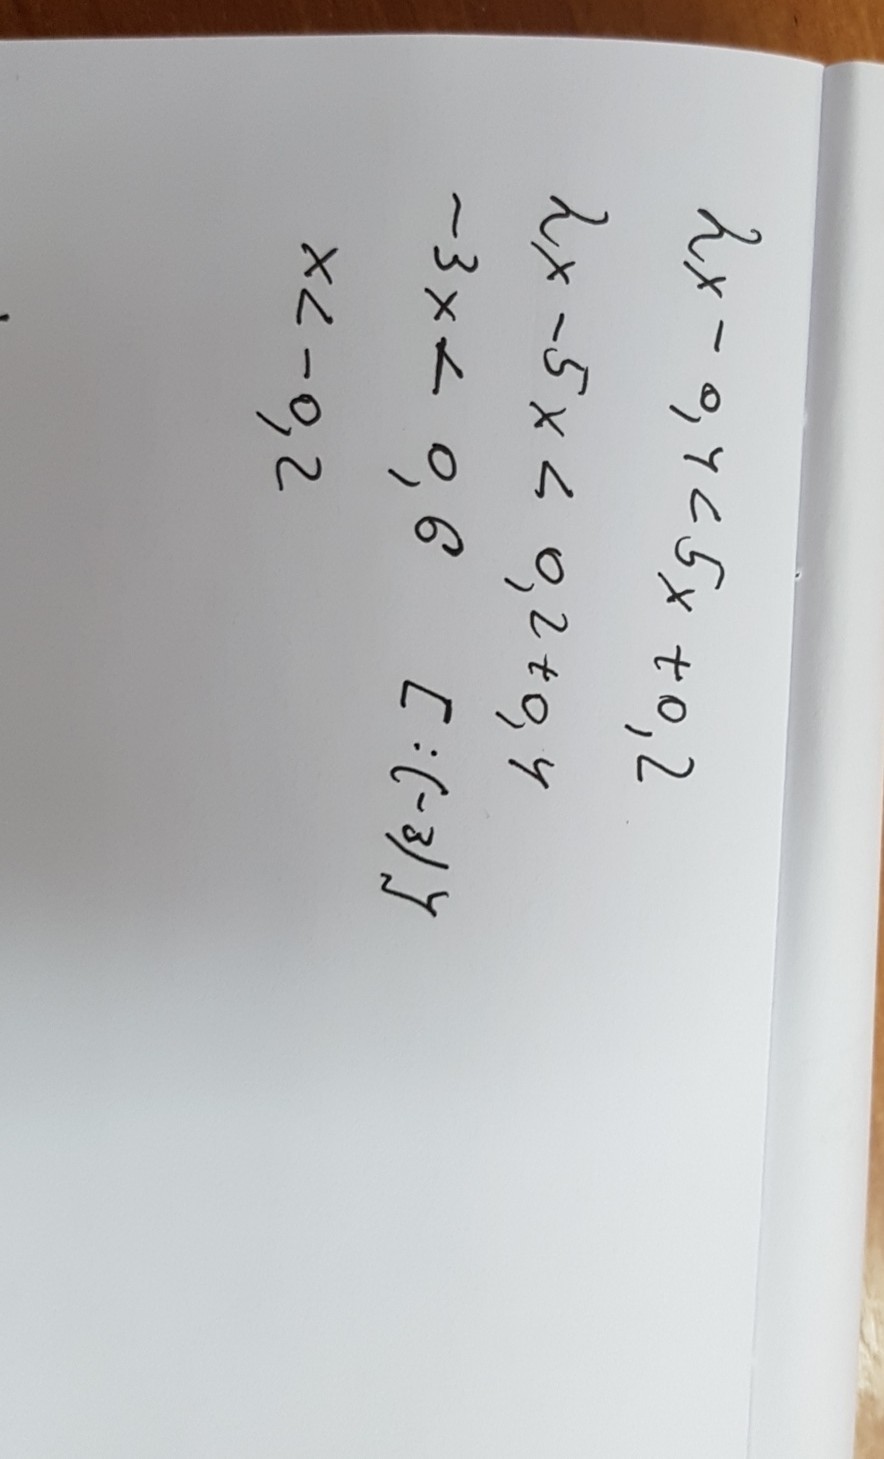 2x - 0,4 < 5x + 0,2
2x - 5x < 0,2 + 0,4
-3x < 0,6 [:(-3)]
x < -0,2